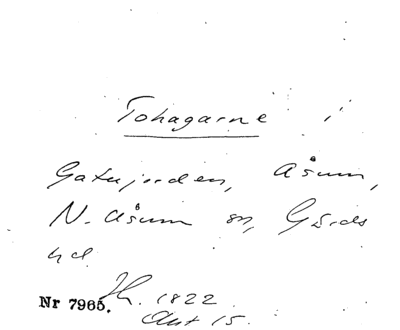 Tohagarne i
Gatujorden, Åsum,
N. Åsum sn, Gärds
hd
Nr 7965. Jh. 1822
Akt 15.